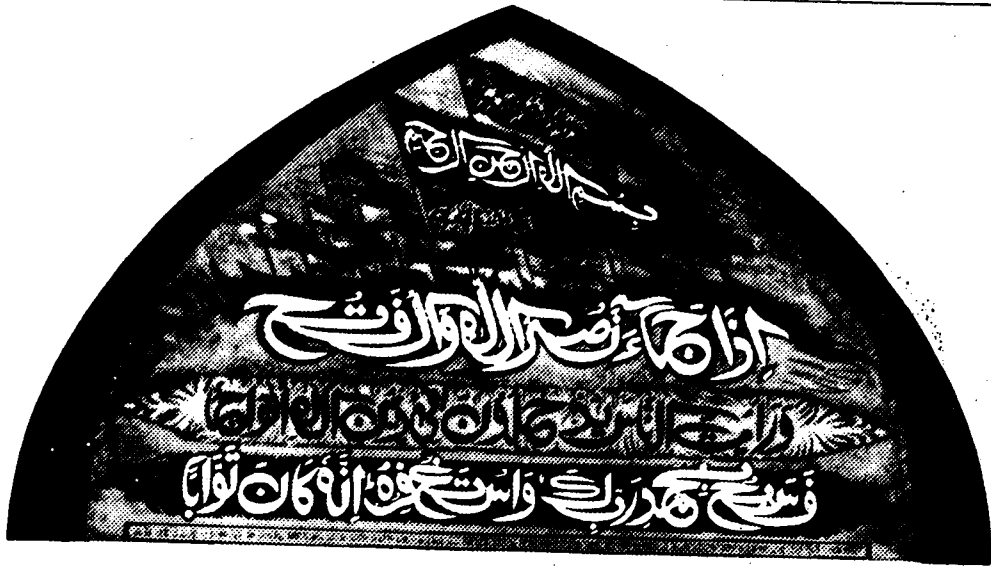 بِسْمِ اللهِ الرَّحْمٰنِ الرَّحِيْمِ
اِذَا جَآءَ نَصْرُ اللهِ وَالْفَتْحُ
وَرَاَيْتَ النَّاسَ يَدْخُلُوْنَ فِيْ دِيْنِ اللهِ اَفْوَاجًا
فَسَبِّحْ بِحَمْدِ رَبِّكَ وَاسْتَغْفِرْهُ اِنَّهٗ كَانَ تَوَّابًا